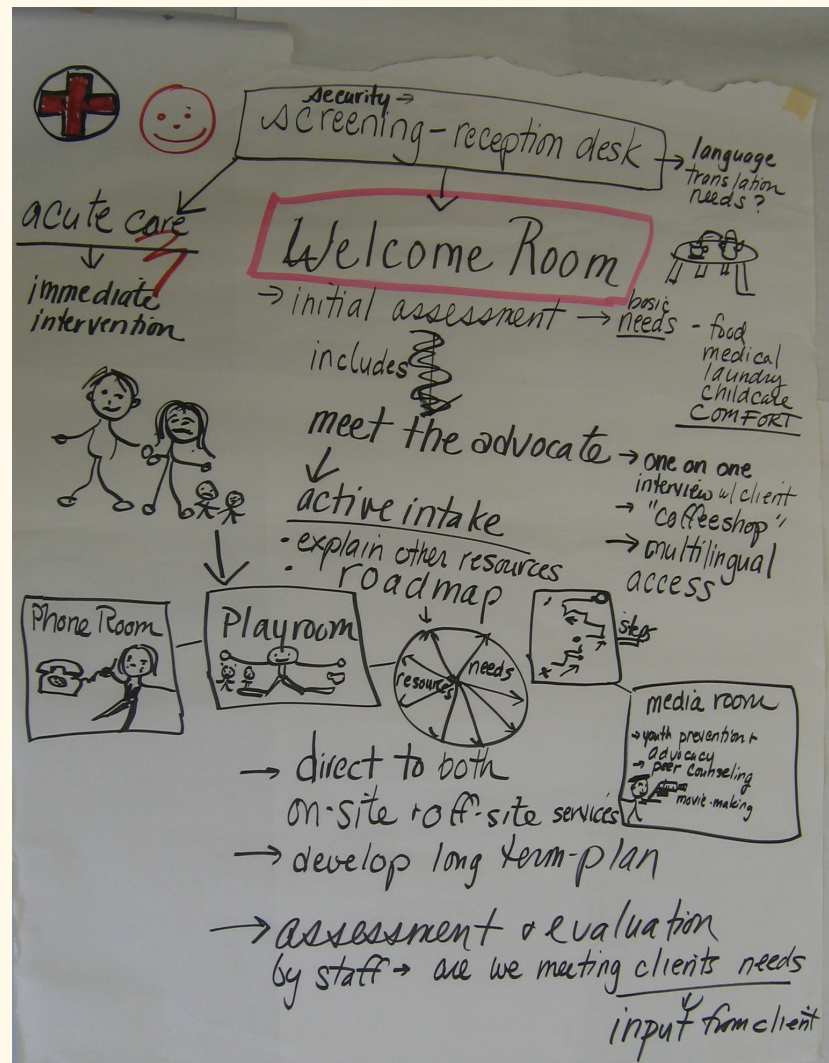 security →
screening - reception desk
→ language
translation
needs?
acute care
immediate
intervention
Welcome Room
→ initial assessment → basic
needs - food
medical
laundry
childcare
COMFORT
includes
meet the advocate → one on one
interview w/ client
→ "coffeeshop"
→ multilingual
access
active intake
• explain other resources
• roadmap
Phone Room
Playroom
resources
needs
steps
media room
→ youth prevention +
advocacy
→ peer counseling
movie-making
→ direct to both
on-site + off-site services
→ develop long term-plan
→ assessment & evaluation
by staff → are we meeting clients needs
input from client